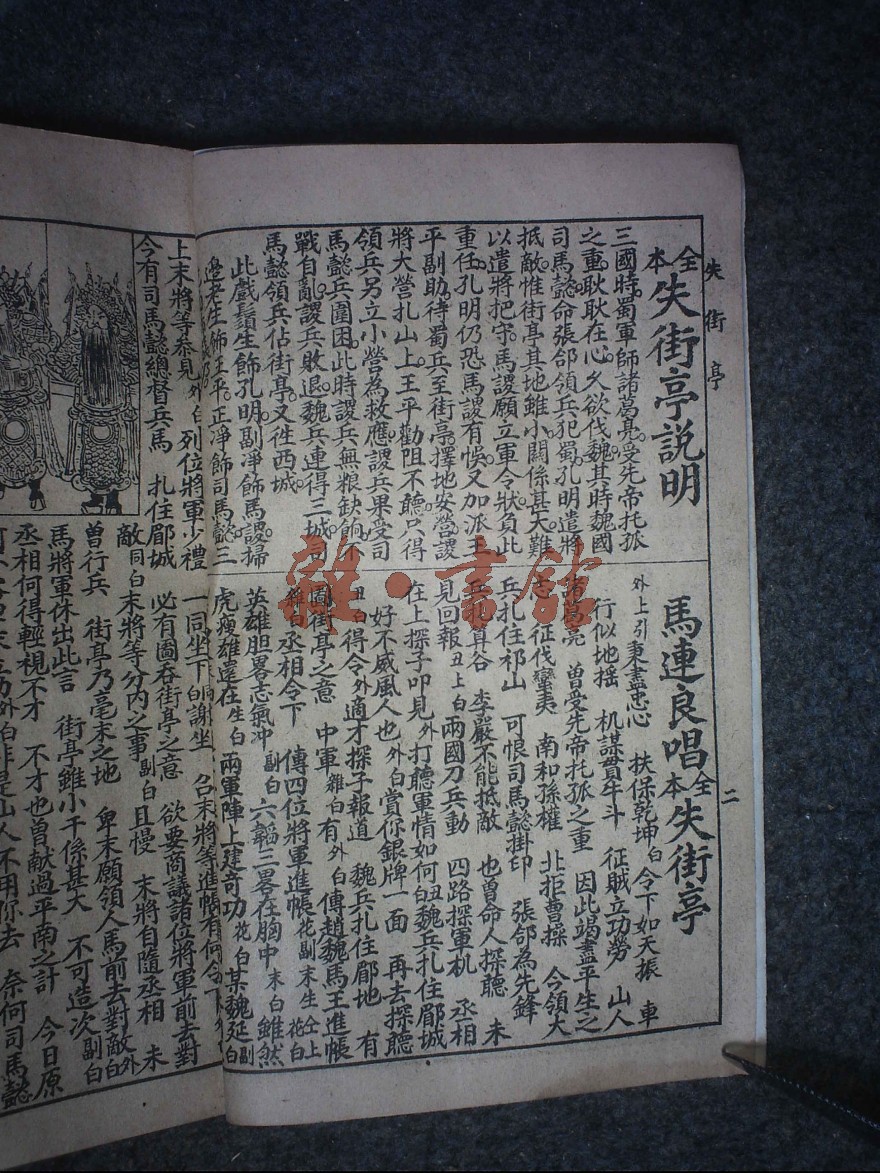 失街亭
二
全本失街亭説明
三國時蜀軍師諸葛亮受先帝托孤
之重耿耿在心久欲伐魏其時魏國
司馬懿命張郃領兵犯蜀孔明遣將
抵敵惟街亭其地雖小關係甚大難
以遣將把守馬謖願立軍令狀負此
重任孔明仍恐馬謖有悞又加派王
平副助待蜀兵至街亭擇地安營謖
將大營扎山上王平勸阻不聽只得
領兵另立小營為救應謖兵果受司
馬懿兵圍困此時謖兵無粮缺餉不
戰自亂謖兵敗退魏兵連得三城司
馬懿領兵佔街亭又徃西城
此戲鬚生飾孔明副凈飾馬謖掃
邊老生飾王平正凈飾司馬懿三
馬連良唱全本失街亭
外上引秉盡忠心 扶保乾坤白令下如天振 車
行似地摇 机謀貫牛斗 征賊立功勞 山人
諸葛亮 曾受先帝托孤之重 因此竭盡平生之
志 征伐蠻夷 南和孫權 北拒曹操 今領大
兵扎住祁山 可恨司馬懿掛印 張郃為先鋒
兵扎箕谷 李嚴不能抵敵 也曾命人探聽 未
見回報丑上白兩國刀兵動 四路探軍机 丞相
在上探子叩見外打聽軍情如何丑白魏兵扎住郿城
好不威風人也外白賞你銀牌一面 再去探聽
丑白得令外適才探子報道 魏兵扎住郿地 有
圖街亭之意 中軍雜白有外白傳趙魏馬王進帳
雜白丞相令下 傳四位將軍進帳花副末生仝上花白
英雄胆畧志氣冲副白六韜三畧在胸中末白雖然
虎瘦雄還在生白兩軍陣上建奇功花白某魏延副白
上末將等叅見外白列位將軍少禮
今有司馬懿總督兵馬 扎住郿城
一同坐下白謝坐 召末將等進帳有何令下
必有圖吞街亭之意 欲要商議諸位將軍前去對
敵同白末將等分内之事副白且慢 末將自隨丞相 未
曾行兵 街亭乃毫末之地 卑末願領人馬前去對敵外白
馬將軍休出此言 街亭雖小干係甚大 不可造次副白
丞相何得輕視不才 不才也曾献過平南之計 今日原
外白非是山人不用你去 奈何司馬懿
雜·書館